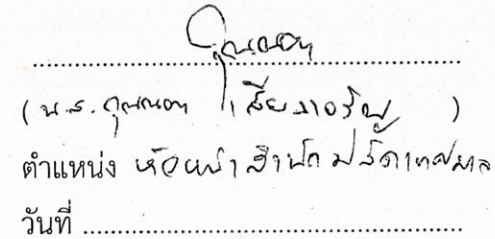 (น.ส. กุณณตา เสียงเจริญ)
ตำแหน่ง หัวหน้าสำนักปลัดเทศบาล
วันที่ ........................................................